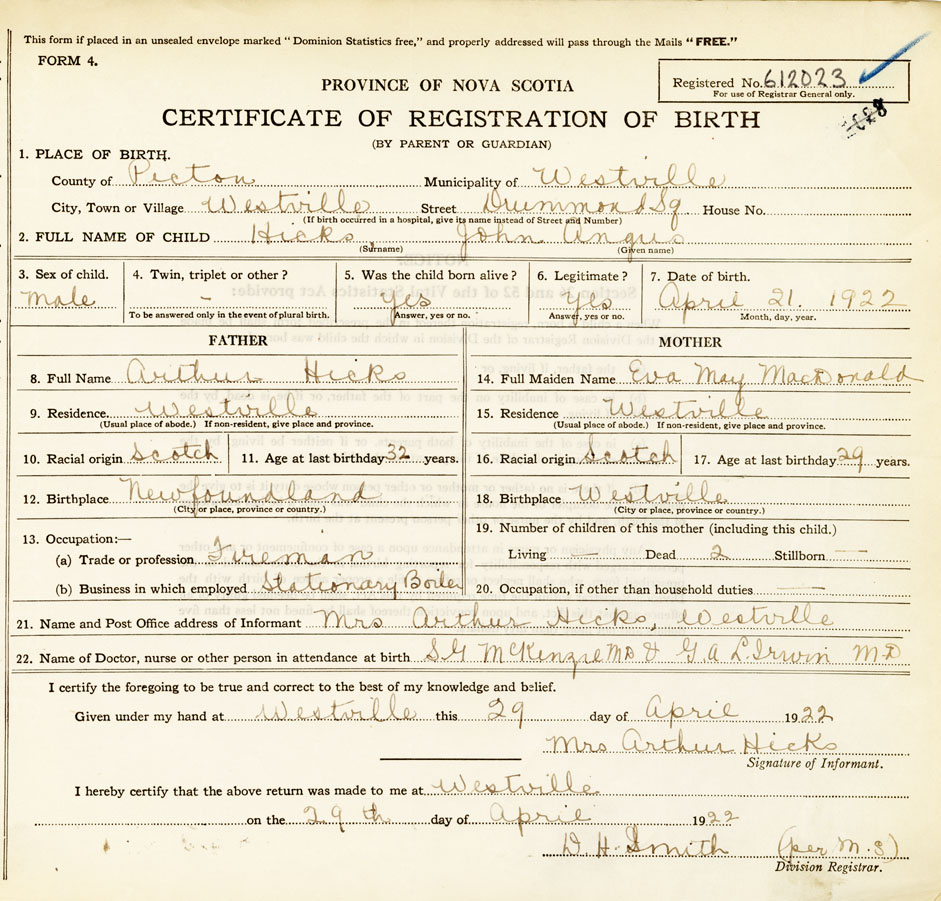 This form if placed in an unsealed envelope marked "Dominion Statistics free," and properly addressed will pass through the Mails "FREE."
FORM 4.
Registered No. 612023
For use of Registrar General only.
PROVINCE OF NOVA SCOTIA
CERTIFICATE OF REGISTRATION OF BIRTH
(BY PARENT OR GUARDIAN)
1. PLACE OF BIRTH.
County of Picton Municipality of Westville
City, Town or Village Westville Street Drummond Sq House No.
(If birth occurred in a hospital, give its name instead of Street and Number)
2. FULL NAME OF CHILD Hicks John Angus
(Surname) (Given name)
3. Sex of child. 4. Twin, triplet or other? 5. Was the child born alive? 6. Legitimate? 7. Date of birth.
male - yes yes April 21. 1922
To be answered only in the event of plural birth. Answer, yes or no. Answer, yes or no. Month, day, year.
FATHER MOTHER
8. Full Name Arthur Hicks 14. Full Maiden Name Eva May MacDonald
9. Residence. Westville 15. Residence Westville
(Usual place of abode.) If non-resident, give place and province. (Usual place of abode.) If non-resident, give place and province.
10. Racial origin Scotch 11. Age at last birthday 32 years. 16. Racial origin Scotch 17. Age at last birthday 29 years.
12. Birthplace Newfoundland 18. Birthplace Westville
(City or place, province or country.) (City or place, province or country.)
13. Occupation:— 19. Number of children of this mother (including this child.)
(a) Trade or profession Fireman Living — Dead 2 Stillborn —
(b) Business in which employed Stationary Boiler 20. Occupation, if other than household duties —
21. Name and Post Office address of Informant Mrs Arthur Hicks, Westville
22. Name of Doctor, nurse or other person in attendance at birth S.G McKenzie MD & G A L Irwin M.D
I certify the foregoing to be true and correct to the best of my knowledge and belief.
Given under my hand at Westville this 29 day of April 1922
Mrs Arthur Hicks
Signature of Informant.
I hereby certify that the above return was made to me at Westville
on the 29th day of April 1922
D. H. Smith (per M. S)
Division Registrar.